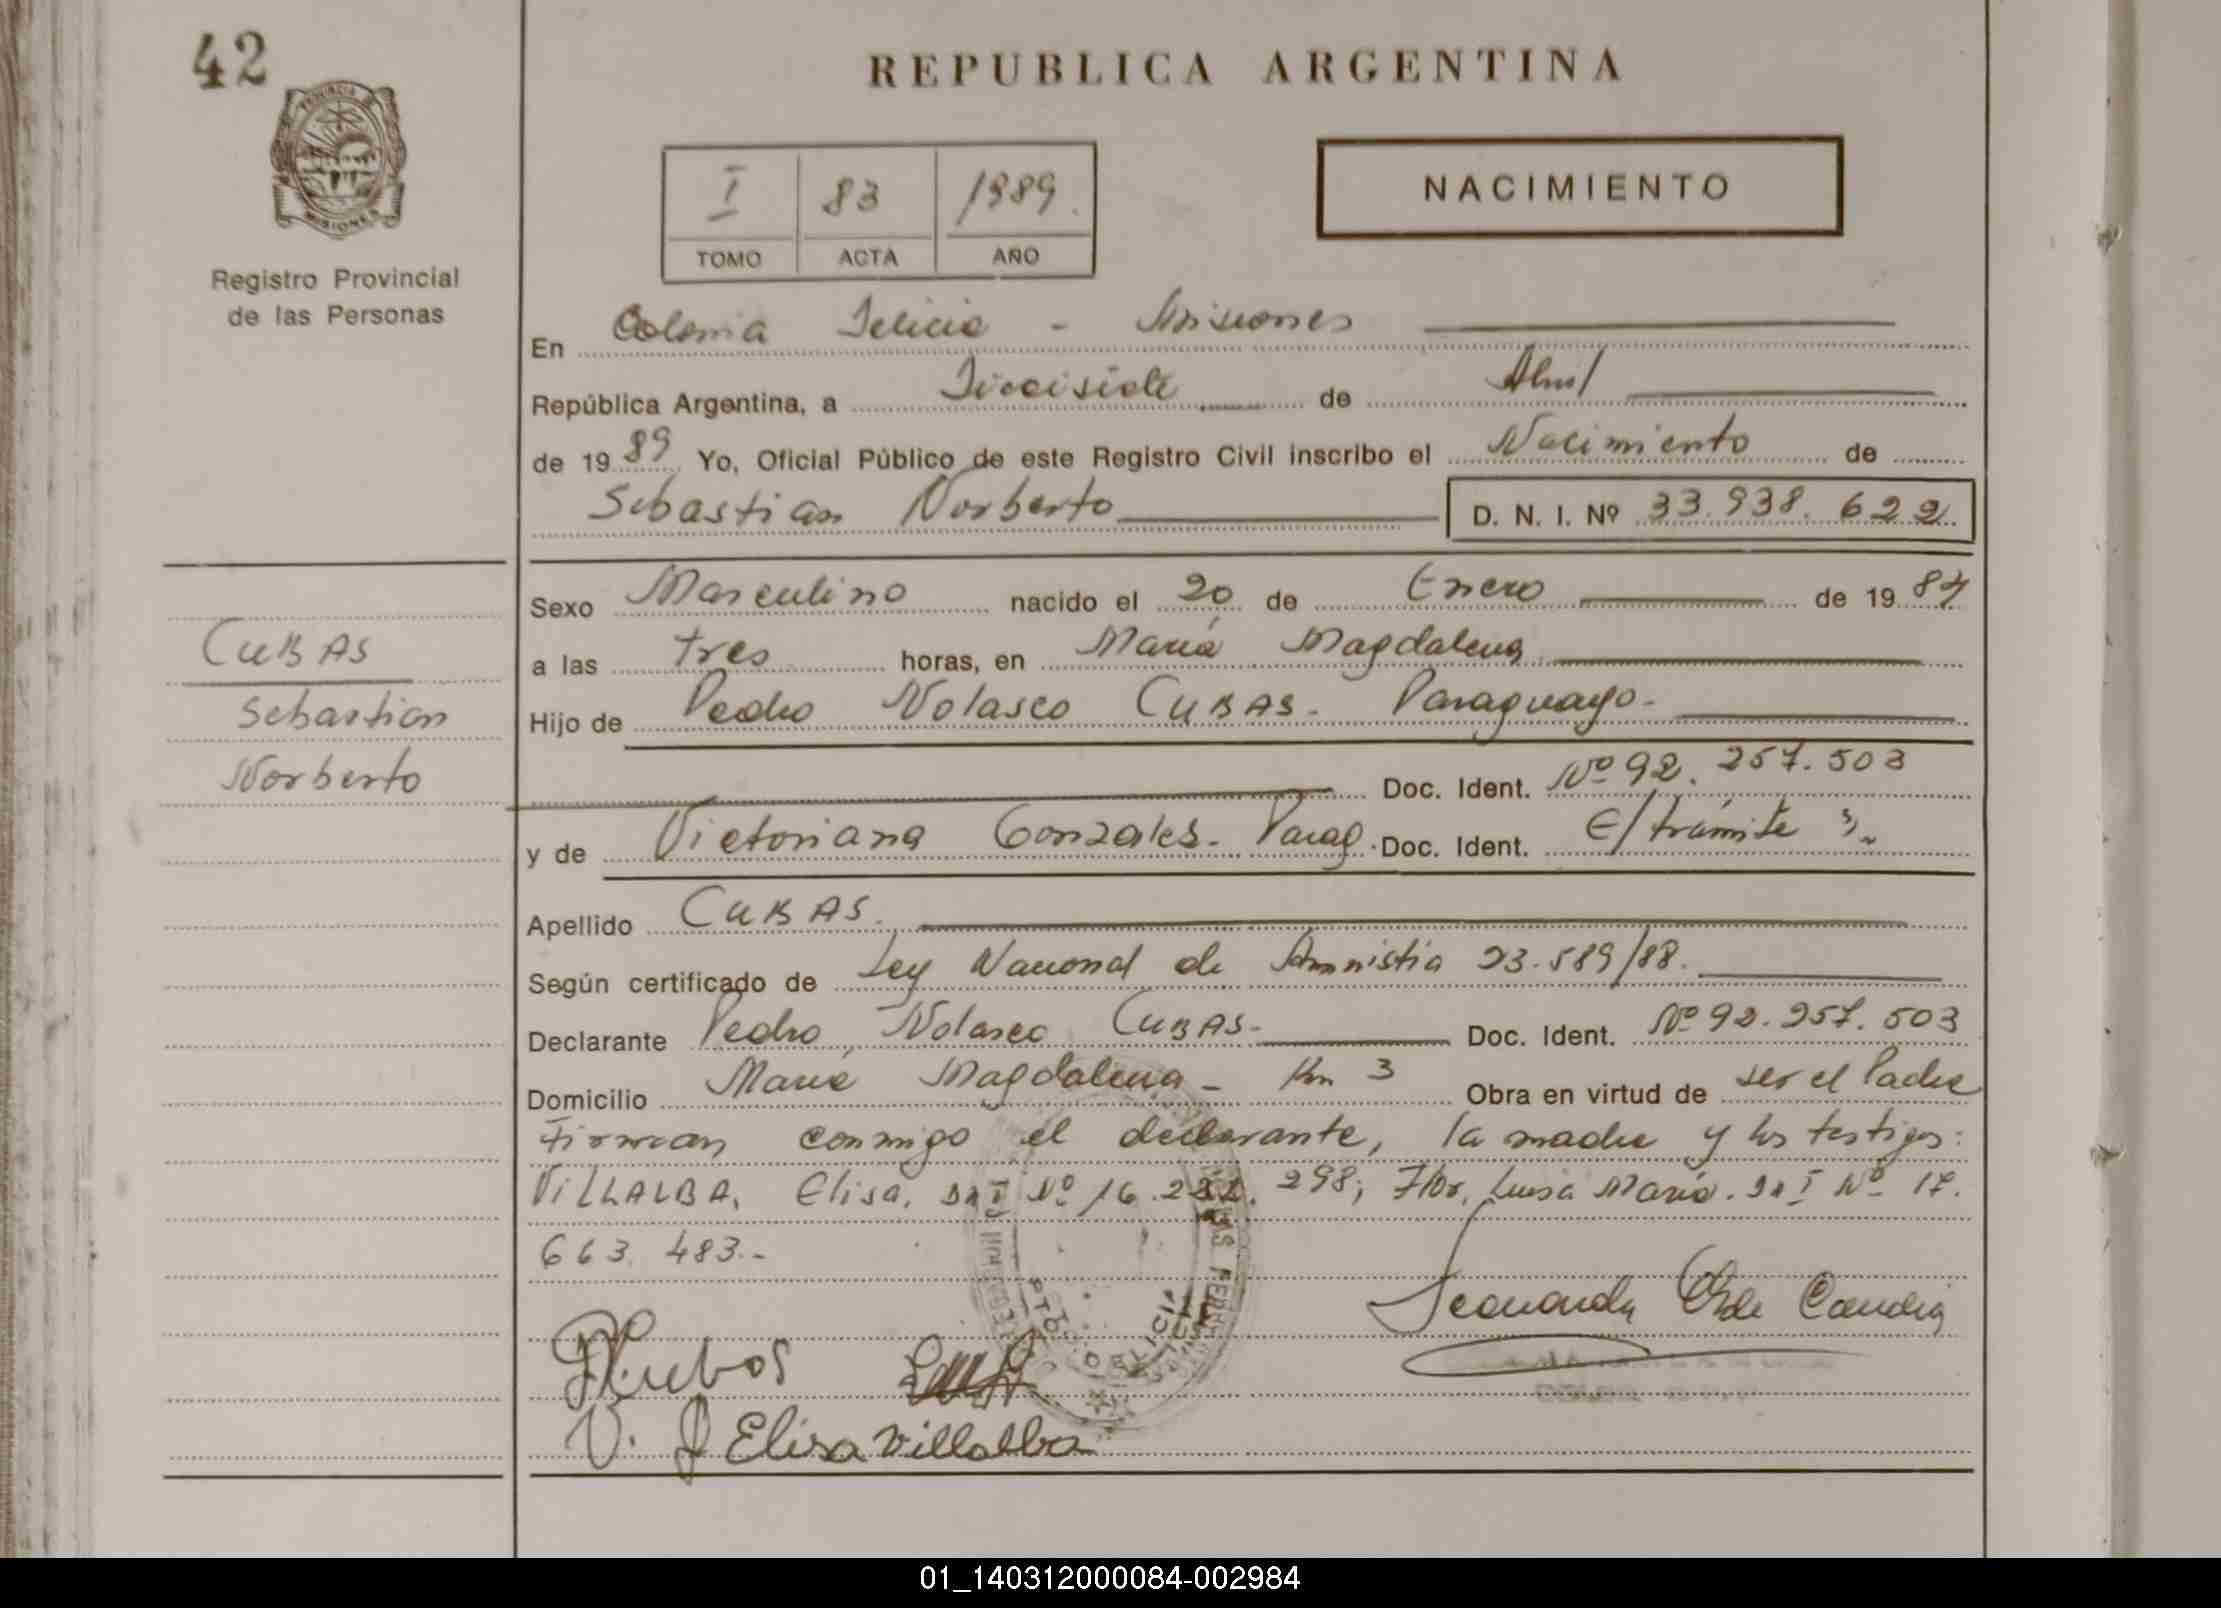 42
REPUBLICA ARGENTINA
PROVINCIA DE
MISIONES
Registro Provincial
de las Personas
I 83 1989.
TOMO ACTA AÑO
NACIMIENTO
En Colonia Delicia - Misiones
República Argentina, a Diecisiete de Abril
de 1989 Yo, Oficial Público de este Registro Civil inscribo el Nacimiento de
Sebastian Norberto D. N. I. Nº 33.938.622
CUBAS
Sebastian
Norberto
Sexo Masculino nacido el 20 de Enero de 1984
a las tres horas, en María Magdalena
Hijo de Pedro Nolasco CUBAS- Paraguayo-
Doc. Ident. Nº 92.257.503
y de Victoriana Gonzales- Parag. Doc. Ident. E/trámite
Apellido CUBAS.
Según certificado de Ley Nacional de Amnistia 23.589/88.
Declarante Pedro Nolasco CUBAS- Doc. Ident. Nº 92.257.503
Domicilio María Magdalena - Km 3 Obra en virtud de ser el Padre
Firman conmigo el declarante, la madre y los testigos:
VILLALBA, Elisa, DNI Nº 16. 298; Flor, Luisa María. DNI Nº 17.
663.483.-
PTO. DELICIA
V. Elisa Villalba
01_140312000084-002984